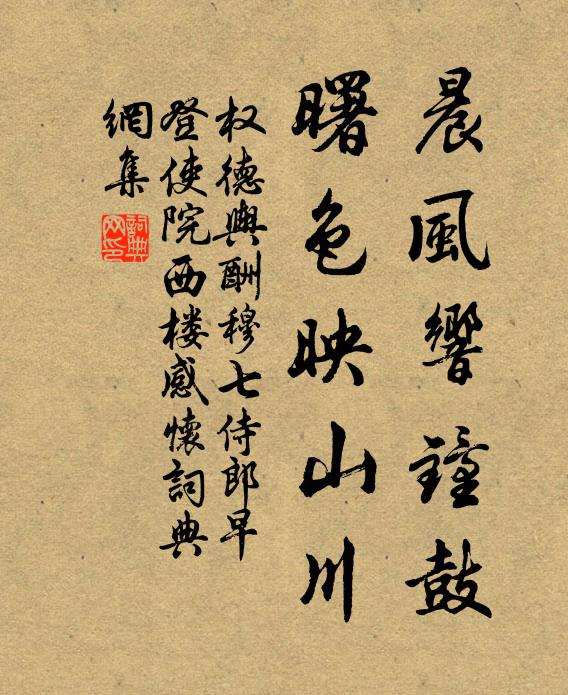 晨風響鐘鼓
曙色映山川
权德輿酬穆七侍郎早
登使院西楼感懷詞典
網集
詞典
网印